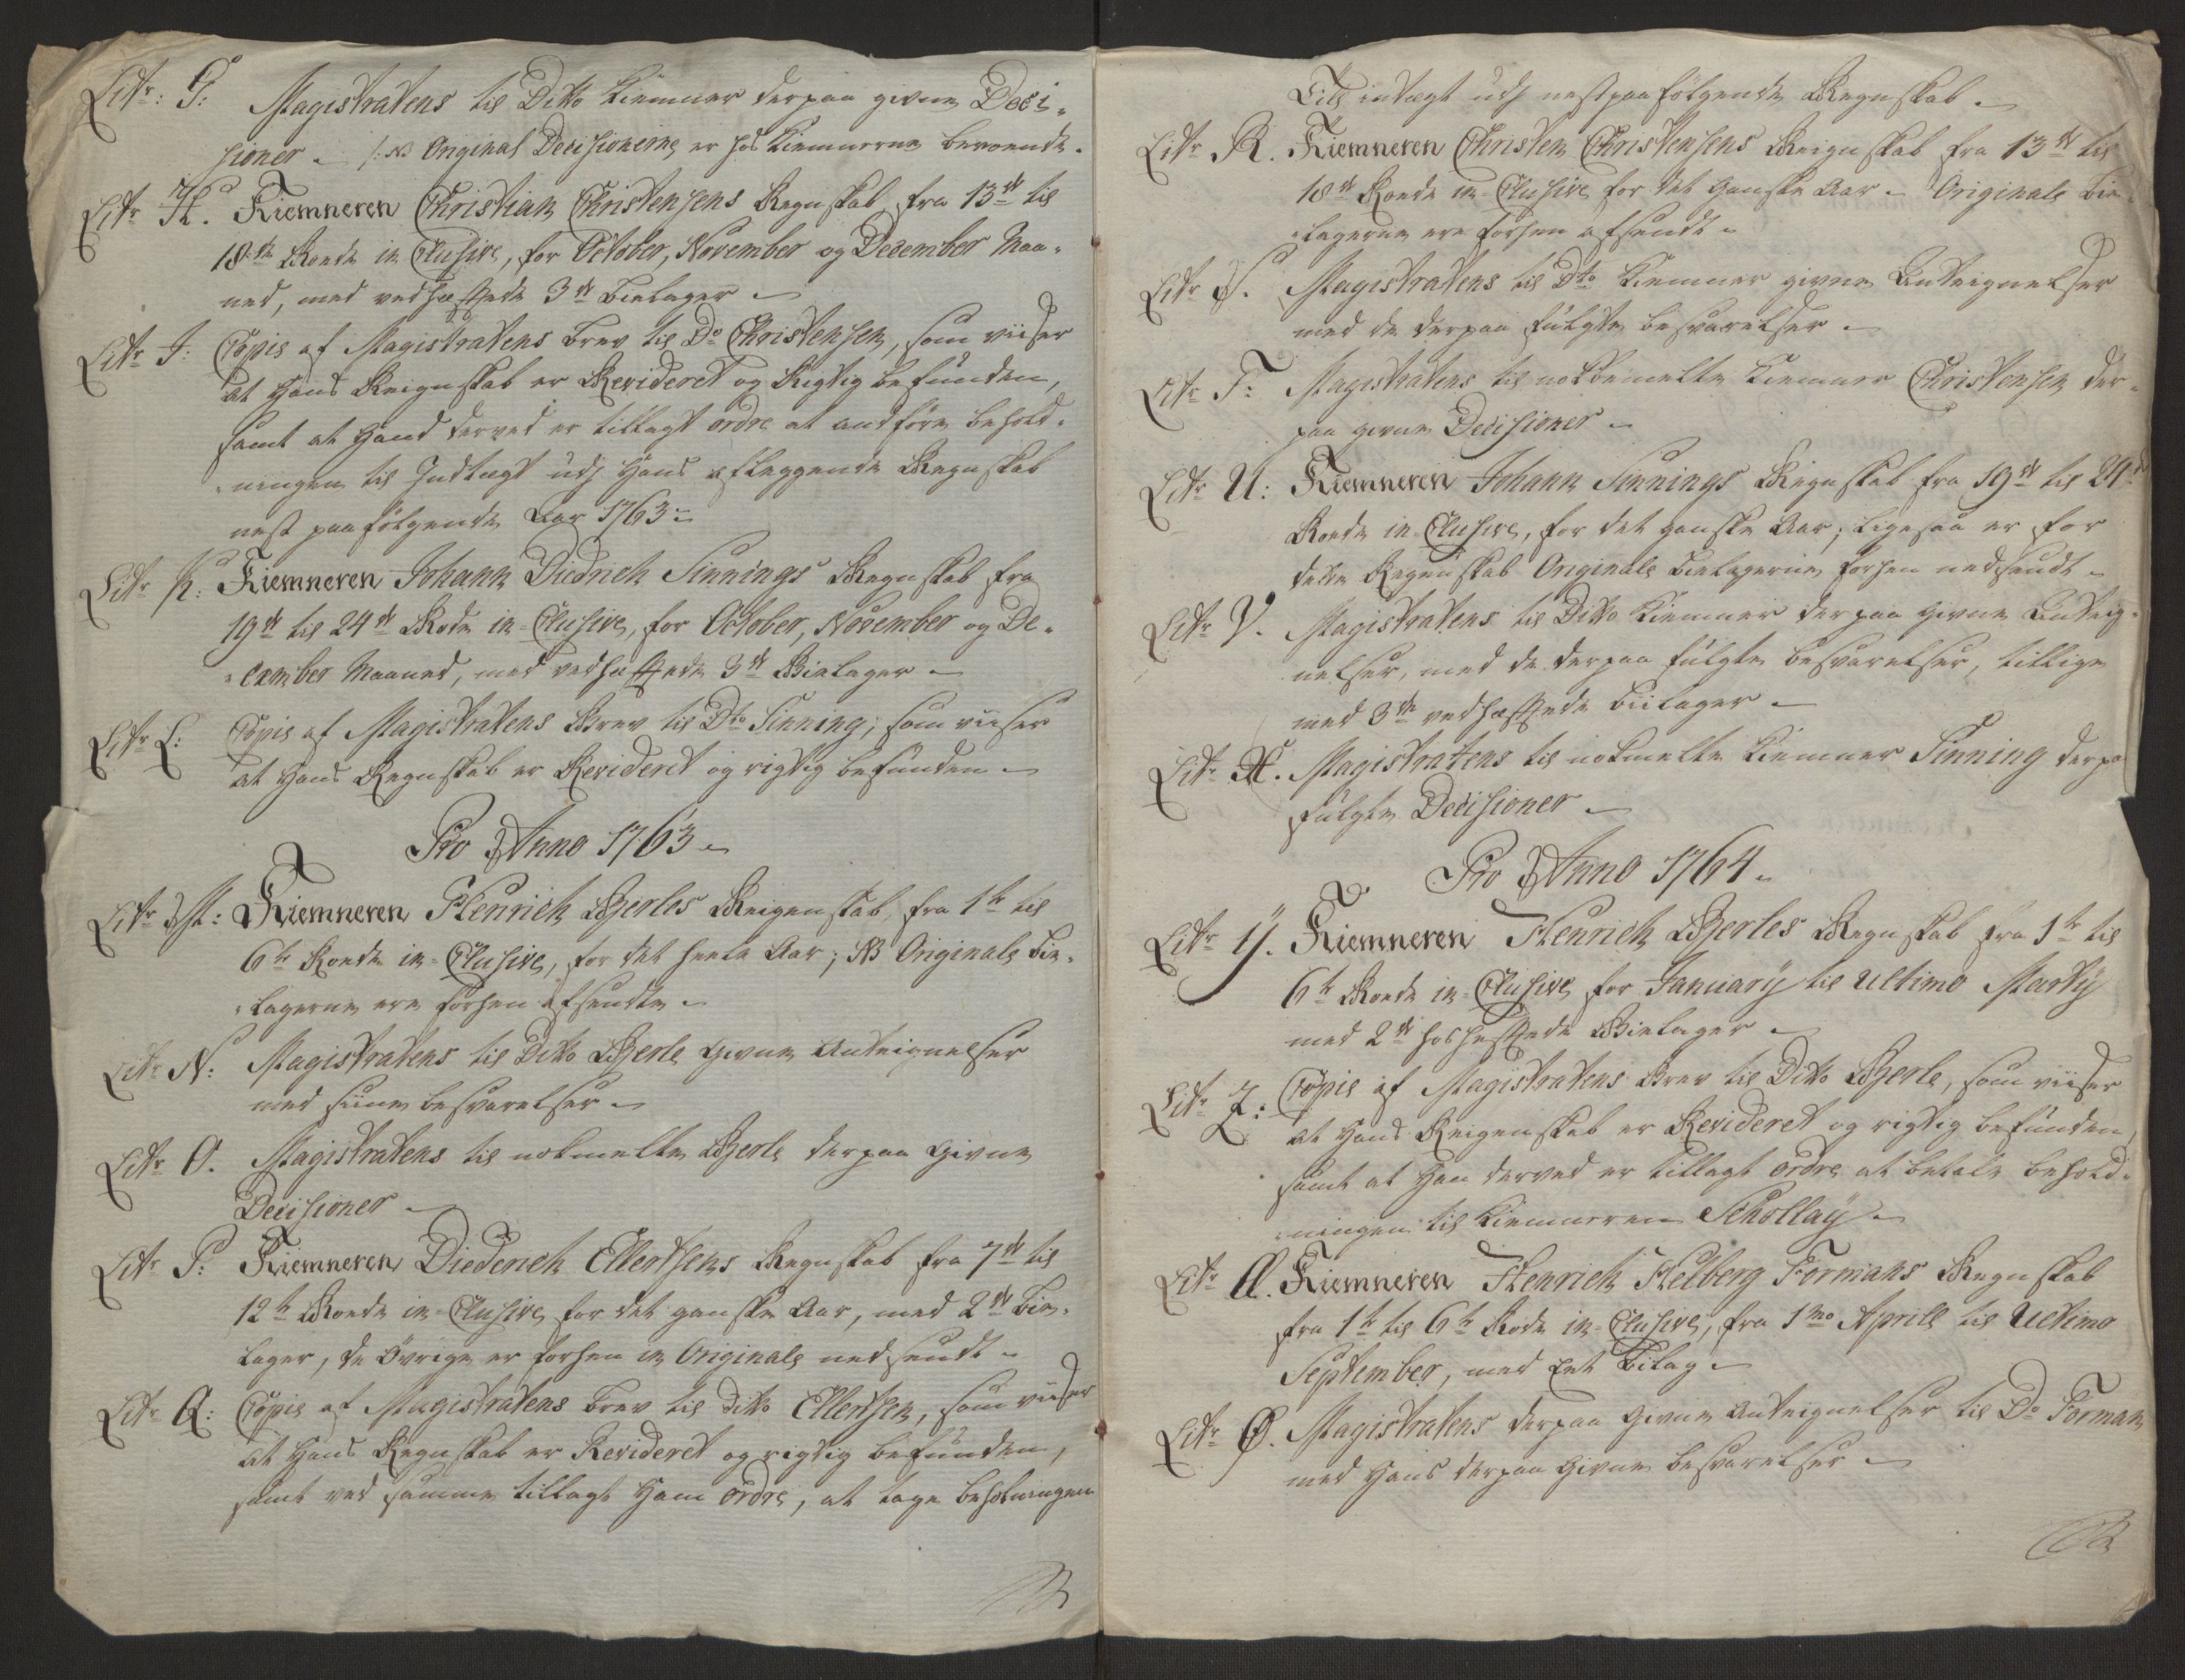 Litr: G: Magistratens til Ditto Kiemner derpaa givne Deci-
sioner – /: NB Original Decisionerne er hos Kiemnerne beroende.
Litr H. Kiemneren Christian Christensens Regnskab fra 13de til
18de Roede in Clusive, for October, November og December Maa-
ned, med vedhæftede 3de Bielager –
Litr I: Copie af Magistratens Brev til Do Christensen, som viiser
at Hans Reignskab er Revideret og Rigtig befunden,
samt at Hand derved er tillagt ordre at andføre behold-
ningen til Indtægt udj Hans aflæggende Regnskab
nest paafølgende Aar 1763 –
Litr K: Kiemneren Johann Diedrich Sinnings Regnskab fra
19de til 24de Rode in-Clusive, for October, November og De-
cember Maaned, med vedhæftede 3de Bielager –
Litr L: Copie af Magistratens Brev til Dto Sinning, som viiser
at Hans Regnskab er Revideret og rigtig befunden –
Pro Anno 1763 –
Litr M: Kiemneren Henrich Gerles Reigenskab, fra 1te til
6te Roede in-Clusive, for det heele Aar; NB Originale Bie-
lagerne ere forhen afsendte –
Litr N: Magistratens til Ditto Gerle givne Anteignelser
med siine besvarelser –
Litr O. Magistratens til notmelte Gerle derpaa givne
Decisioner –
Litr P: Kiemneren Diederich Ellertsens Regnskab fra 7de til
12te Roede in-Clusive for det ganske Aar, med 2de Bie-
lager, de øvrige er forhen in Originale nedsendt –
Litr Q: Copie af Magistratens Brev til ditto Ellertsen, som viiser
at Hans Regnskab er Revideret og rigtig befunden,
samt ved samme tillagt Ham ordre, at tage beholningen
Till indtægt udj nestpaafølgende Regnskab –
Litr R. Kiemneren Christen Christensens Reignskab fra 13de til
18de Roede in-Clusive for det Ganske Aar – Originale Bie-
lagerne ere forhen afsendt –
Litr S. Magistratens til Dto Kiemner givne Anteignelser
med de derpaa fulgte besvarelser –
Litr T: Magistratens til notbemelte Kiemner Christensen der-
paa givne Decisioner –
Litr U: Kiemneren Johann Sinnings Regnskab fra 19de til 24de
Roede in Clusive, for det ganske Aar, ligesaa er for
dette Regenskab Originale Bielagerne forhen nedsendt –
Litr V. Magistratens til Ditto Kiemner derpaa givne Anteig-
nelser, med de derpaa fulgte besvarelser, tillige
med 3de vedhæftede Biilager –
Litr X. Magistratens til notmelte Kiemner Sinning derpa
fulgte Decisioner –
Pro Anno 1764 –
Litr Y. Kiemneren Henrich Gerles Regnskab fra 1te til
6te Roede in-Clusive for Januarÿ til Ultimo Martÿ
med 2de hoshæftede Bielager –
Litr Z: Copie af Magistratens Brev til Ditto Gerle, som viiser
at Hans Reigenskab er Revideret og rigtig befunden,
samt at Han derved er tillagt ordre at betale behold-
ningen til Kiemneren Schollaÿ –
Litr Æ. Kiemneren Henrich Helberg Formans Regnskab
fra 1te til 6te Rode in-Clusive, fra 1mo Aprill til Ultimo
September, med Eet Bilag –
Litr Ø. Magistratens derpaa givne Anteignelser til Do Forman
med Hans derpaa givne besvarelser –